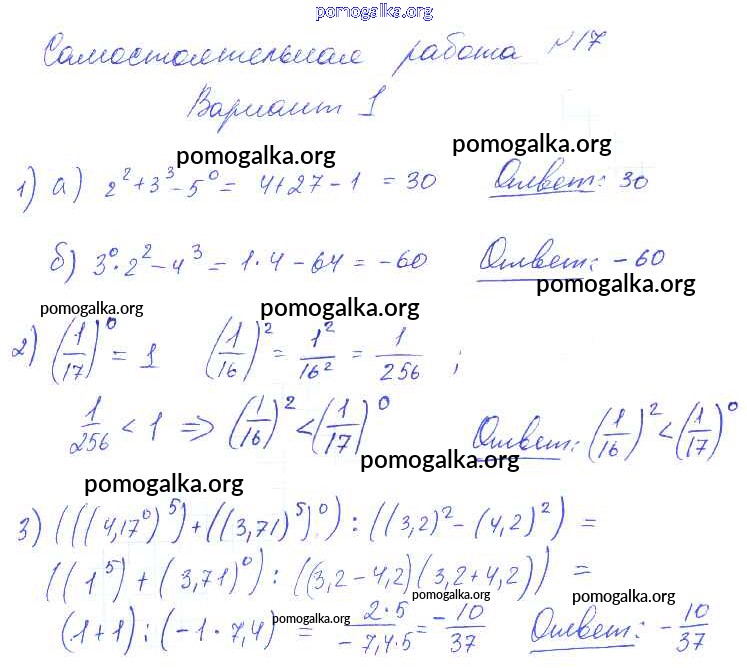 pomogalka.org
Самостоятельная работа №17
Вариант 1
pomogalka.org
pomogalka.org
1) а) 2² + 3³ - 5⁰ = 4 + 27 - 1 = 30 Ответ: 30
б) 3⁰ · 2² - 4³ = 1 · 4 - 64 = -60 Ответ: -60
pomogalka.org
pomogalka.org
pomogalka.org
2) (1/17)⁰ = 1 (1/16)² = 1²/16² = 1/256 ;
1/256 < 1 => (1/16)² < (1/17)⁰ Ответ: (1/16)² < (1/17)⁰
pomogalka.org
pomogalka.org
3) (((4,17⁰)⁵) + ((3,71)⁵)⁰) : ((3,2)² - (4,2)²) =
((1⁵) + (3,71)⁰) : ((3,2 - 4,2)(3,2 + 4,2)) =
pomogalka.org
pomogalka.org
pomogalka.org
(1 + 1) : (-1 · 7,4) = 2·5/-7,4·5 = -10/37 Ответ: -10/37